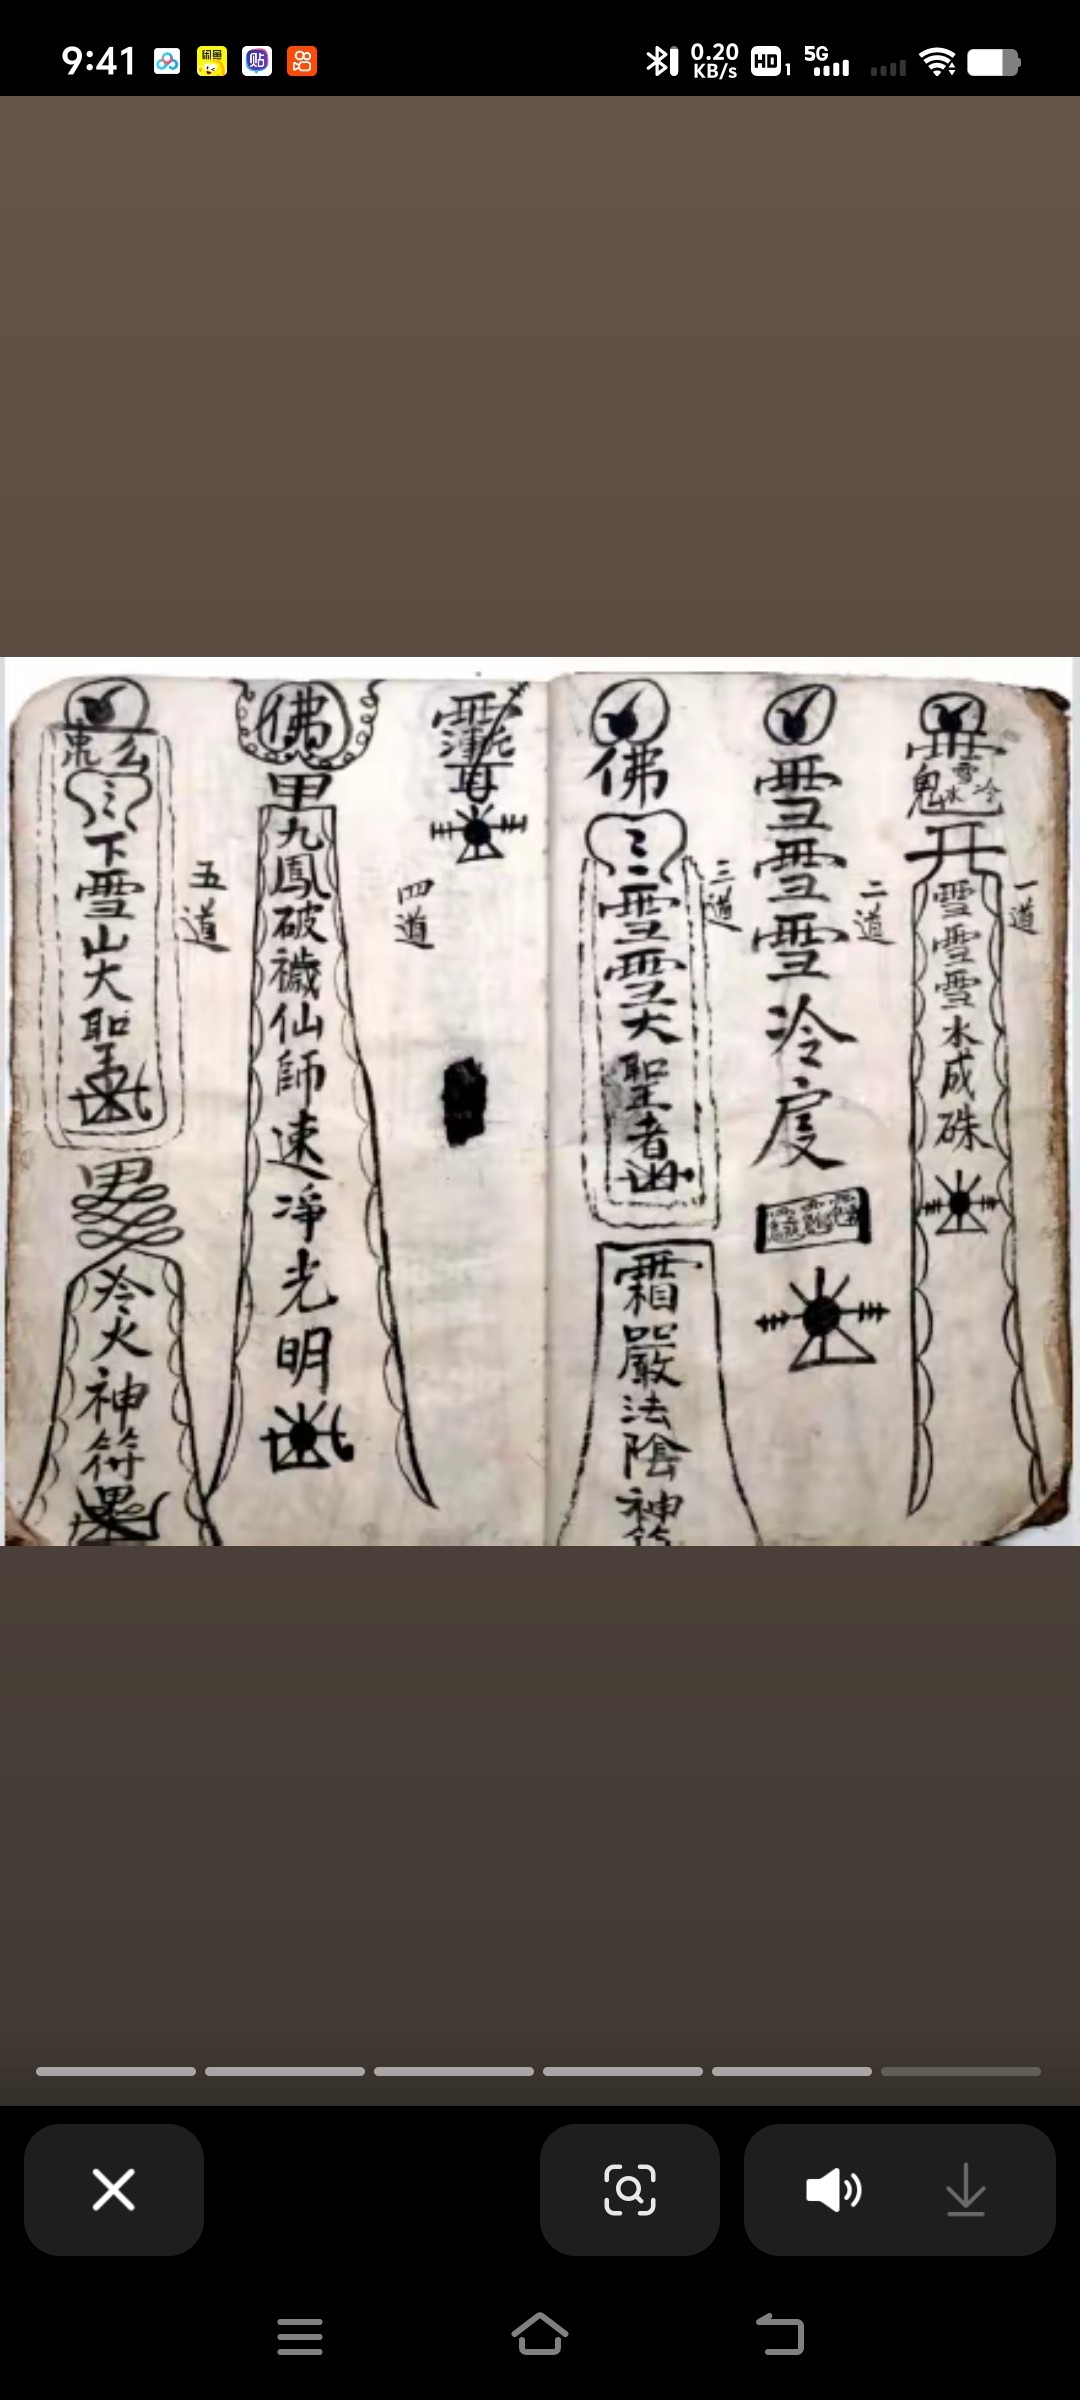 9:41
闲鱼
贴
0.20
KB/s
HD 1
5G
鬼
雪
水
冷
開
雪雪雪水成硃
一道
雪雪雪冷度
二道
佛
三
雪雪大聖者
三道
霜嚴法陰神符
四道
佛
甲
九鳳破穢仙師速淨光明
五道
三
下雪山大聖
冷火神符墨